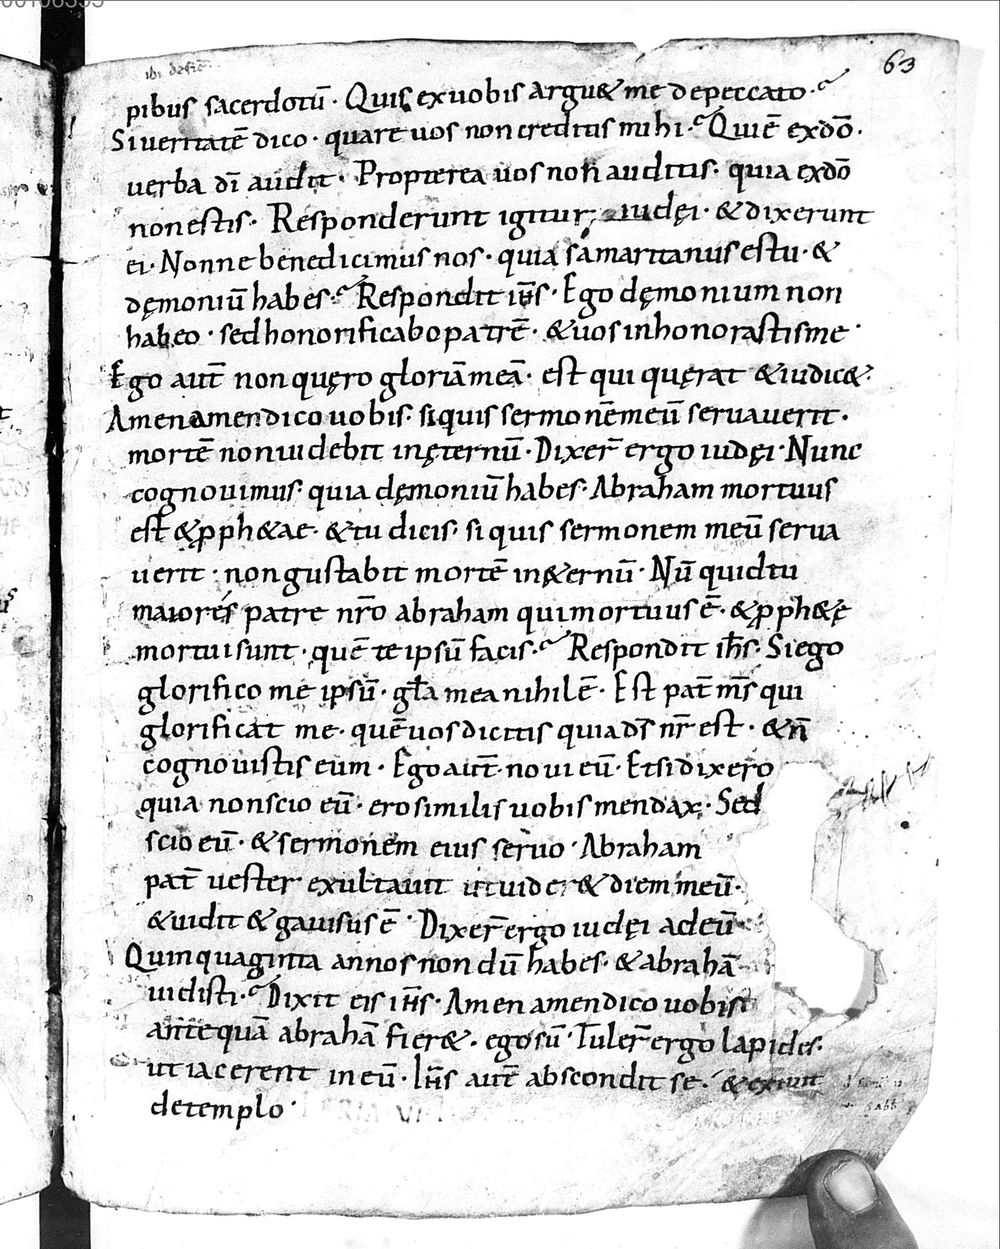 63
pibus sacerdotū · Quis exuobis arguet me depeccato ·
Siueritatē dico · quare uos non creditis mihi · Quiē exdō ·
uerba dī audit · Propterea uos non auditis · quia exdō
nonestis · Responderunt igitur iudęi · & dixerunt
ei · Nonne benedicimus nos · quia samaritanus estu · &
dęmoniū habes · Respondit ihs · Ego dęmonium non
habeo · sed honorificabo patrē · & uos inhonorastis me ·
Ego aut̄ non quęro gloriā meā · est qui quęrat & iudic& ·
Amen amen dico uobis · siquis sermonē meū seruauerit ·
mortē non uidebit in ęternū · Dixer̄ ergo iudęi · Nunc
cognouimus · quia dęmoniū habes · Abraham mortuus
est & pph&ae · & tu dicis · si quis sermonem meū serua
uerit · non gustabit mortē in &ernū · Nū quid tu
maiores patre nr̄o abraham qui mortuus ē · & pph&ę
mortui sunt · quē te ipsū facis · Respondit ihs · Si ego
glorifico me ipsū · gl̄a mea nihil ē · Est pat̄ ms̄ qui
glorificat me · quē uos dicitis quia ds̄ nr̄ est · & n̄
cognouistis eum · Ego aut̄ noui eū · Et si dixero
quia non scio eū · ero similis uobis mendax · Sed
scio eū · & sermonem eius seruo · Abraham
pat̄ uester exultauit ut uider& diem meū ·
& uidit & gauisus ē · Dixer̄ ergo iudęi ad eū
Quinquaginta annos non dū habes · & abrahā
uidisti · Dixit eis ihs · Amen amen dico uobis
ante quā abrahā fier& · ego sū · Tuler̄ ergo lapides ·
ut iacerent in eū · Ihs aut̄ abscondit se · & exiuit
de templo ·